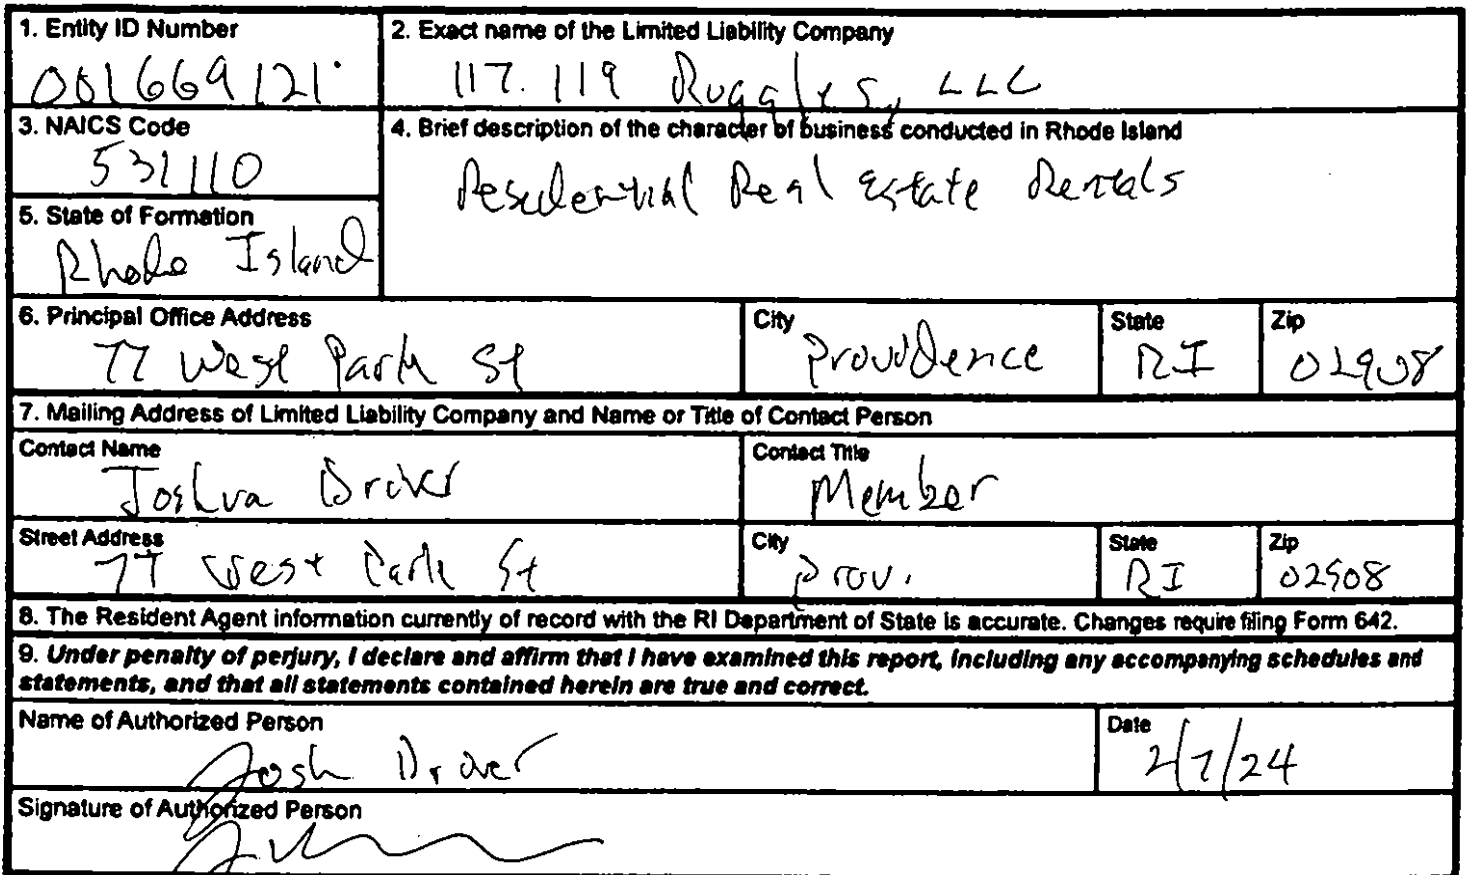 1. Entity ID Number
001669121
2. Exact name of the Limited Liability Company
117.119 Ruggles, LLC
3. NAICS Code
531110
4. Brief description of the character of business conducted in Rhode Island
Residential Real Estate Rentals
5. State of Formation
Rhode Island
6. Principal Office Address
77 West Park St
City
Providence
State
RI
Zip
02908
7. Mailing Address of Limited Liability Company and Name or Title of Contact Person
Contact Name
Joshua Draver
Contact Title
Member
Street Address
77 West Park St
City
Prov.
State
RI
Zip
02908
8. The Resident Agent information currently of record with the RI Department of State is accurate. Changes require filing Form 642.
9. Under penalty of perjury, I declare and affirm that I have examined this report, including any accompanying schedules and
statements, and that all statements contained herein are true and correct.
Name of Authorized Person
Josh Draver
Date
2/7/24
Signature of Authorized Person